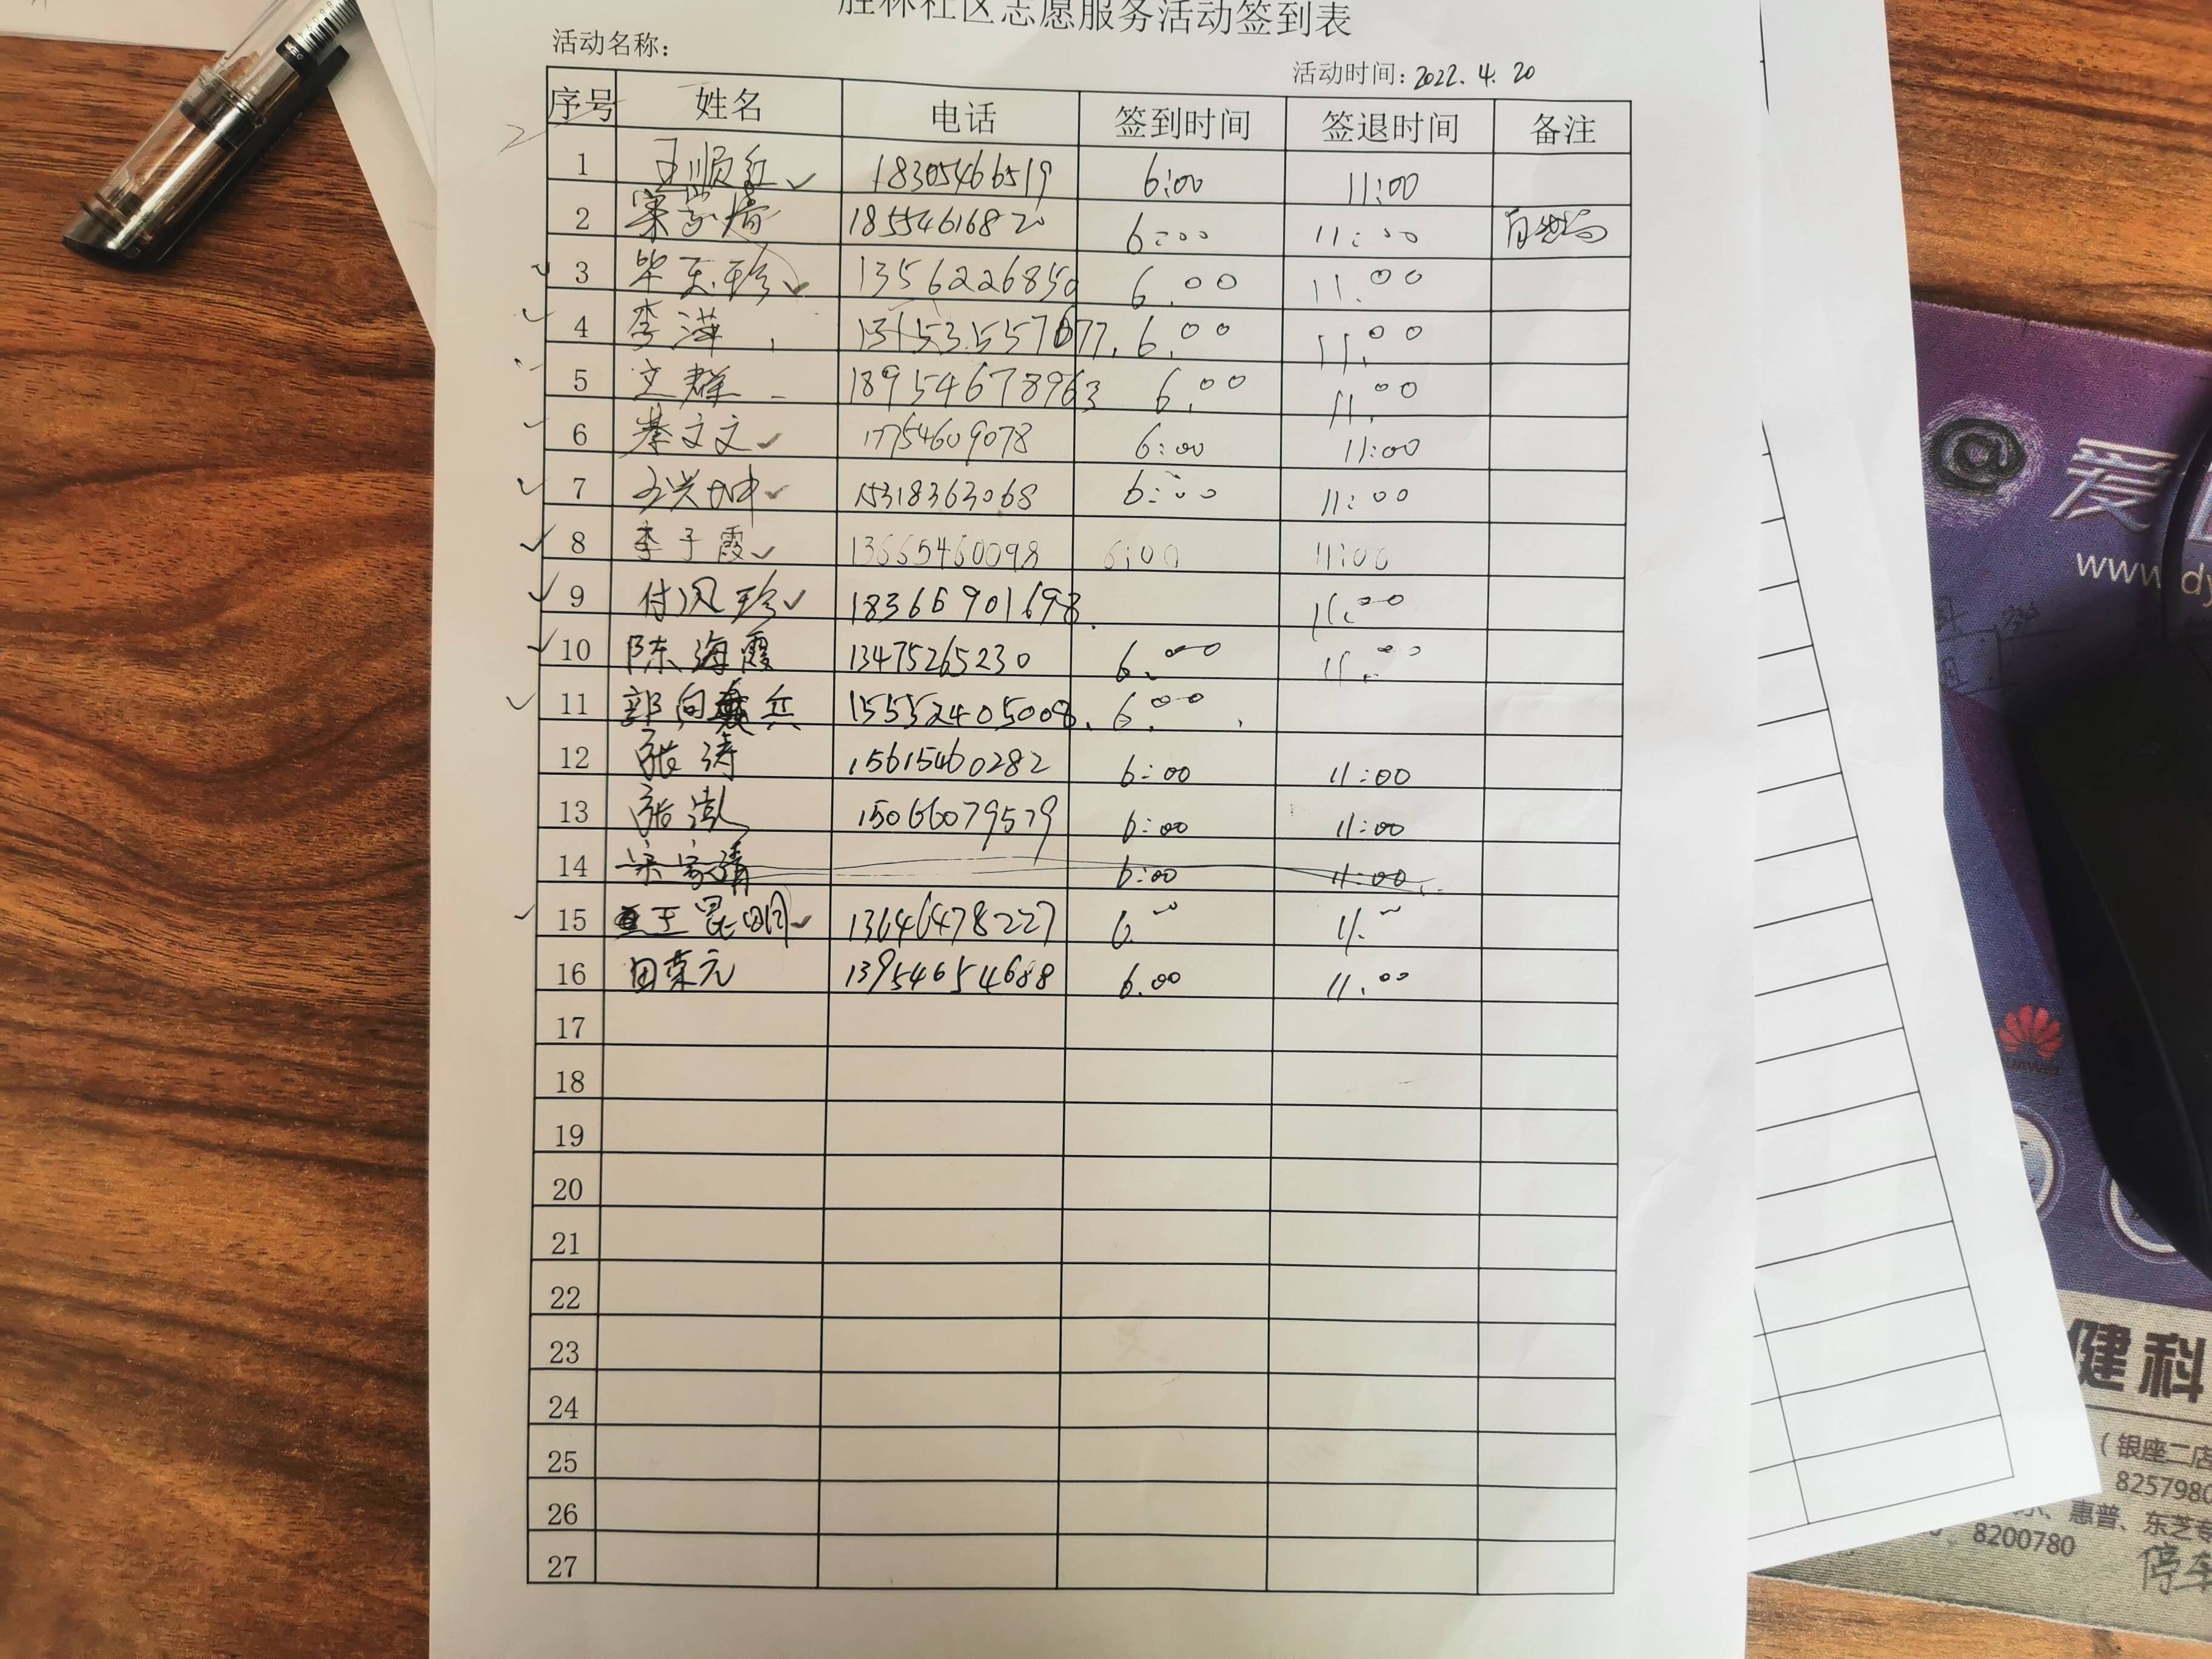 胜林社区志愿服务活动签到表
活动名称：
活动时间：2022.4.20
序号 姓名 电话 签到时间 签退时间 备注
1 王顺红 18305466519 6:00 11:00
2 宋家清 18554616820 6:00 11:00
3 毕玉珍 13562268850 6.00 11.00
4 李萍 6.00 11.00
5 文群 18954678963 6.00 11.00
6 綦文文 17754609078 6:00 11:00
7 15318363068 6:00 11:00
8 李子霞 13665460098 6:00 11:00
9 付凤珍 18366901698 11.00
10 陈海霞 13475265230 6.00 11.00
11 郭向兵 15552405008 6.00
12 张涛 15615460282 6:00 11:00
13 张 15066079579 6:00 11:00
14 宋家清 6:00 11:00
15 王昆明 13646478227 6. 11.
16 田荣元 13954654688 6.00 11.00
17
18
19
20
21
22
23
24
25
26
27
@ 爱
www.dy
HUAWEI
健科
（银座二店
8257980
、惠普、东芝专
8200780
停车